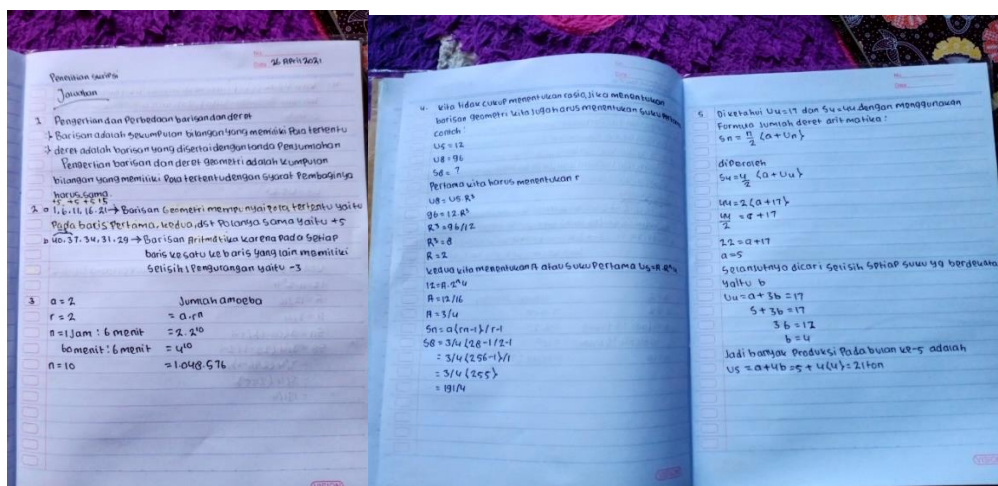 26 April 2021
Penelitian
Jawaban
1 Pengertian dan Perbedaan barisan dan deret
Barisan adalah sekumpulan bilangan yang memiliki Pola tertentu
deret adalah barisan yang disertai dengan tanda Penjumlahan
Pengertian barisan dan deret geometri adalah kumpulan
bilangan yang memiliki Pola tertentu dengan syarat Pembaginya
harus sama.
+5 +5 +5 +5
2 a 1, 6, 11, 16. 21 → Barisan Geometri mempunyai Pola, tertentu yaitu
Pada baris Pertama, kedua, dst Polanya sama yaitu +5
b 40. 37. 34, 31. 29 → Barisan Aritmatika karena Pada setiap
baris kesatu ke baris yang lain memiliki
selisih / Pengurangan yaitu -3
3 a = 2 Jumlah amoeba
r = 2 = a.rⁿ
n = 1 Jam : 6 menit = 2.2¹⁰
60 menit : 6 menit = 4¹⁰
n = 10 = 1.048.576
4. kita tidak cukup menentukan rasio, Jika menentukan
barisan geometri kita Juga harus menentukan Suku Pertama
contoh :
U5 = 12
U8 = 96
S8 = ?
Pertama kita harus menentukan r
U8 = U5.R³
96 = 12.R³
R³ = 96/12
R³ = 8
R = 2
kedua kita menentukan A atau Suku Pertama U5 = A.R^4
12 = A.2^4
A = 12/16
A = 3/4
Sn = a(rn-1)/r-1
S8 = 3/4 (28-1/2-1
= 3/4 (256-1)/1
= 3/4 (255)
= 191/4
5. Diketahui U4 = 17 dan S4 = 44 dengan menggunakan
Formula Jumlah deret aritmatika :
Sn = n/2 (a + Un)
diPeroleh
S4 = 4/2 (a + U4)
44 = 2 (a + 17)
44/2 = a + 17
22 = a + 17
a = 5
Selanjutnya dicari Selisih Setiap suku yg berdekatan
yaitu b
U4 = a + 3b = 17
5 + 3b = 17
3b = 12
b = 4
Jadi banyak Produksi Pada bulan ke-5 adalah
U5 = a + 4b = 5 + 4(4) = 21 ton